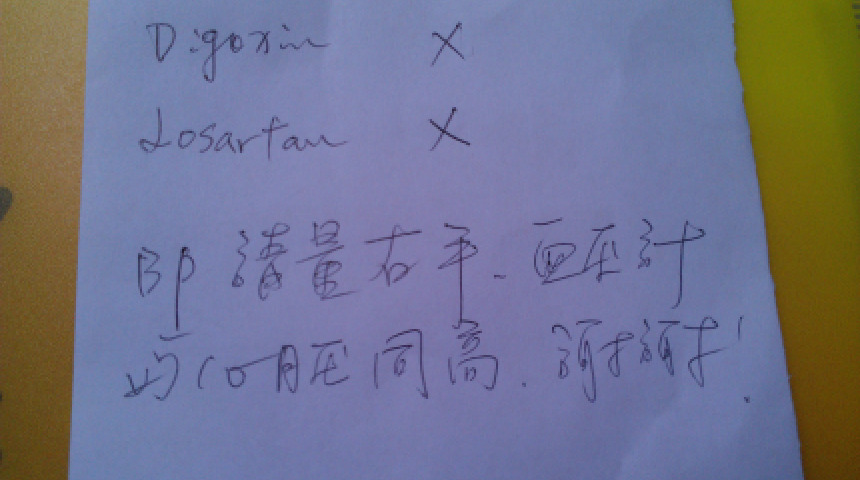 Digoxin X
Losartan X
BP 請量右手、血压計
与心脏同高、謝謝!